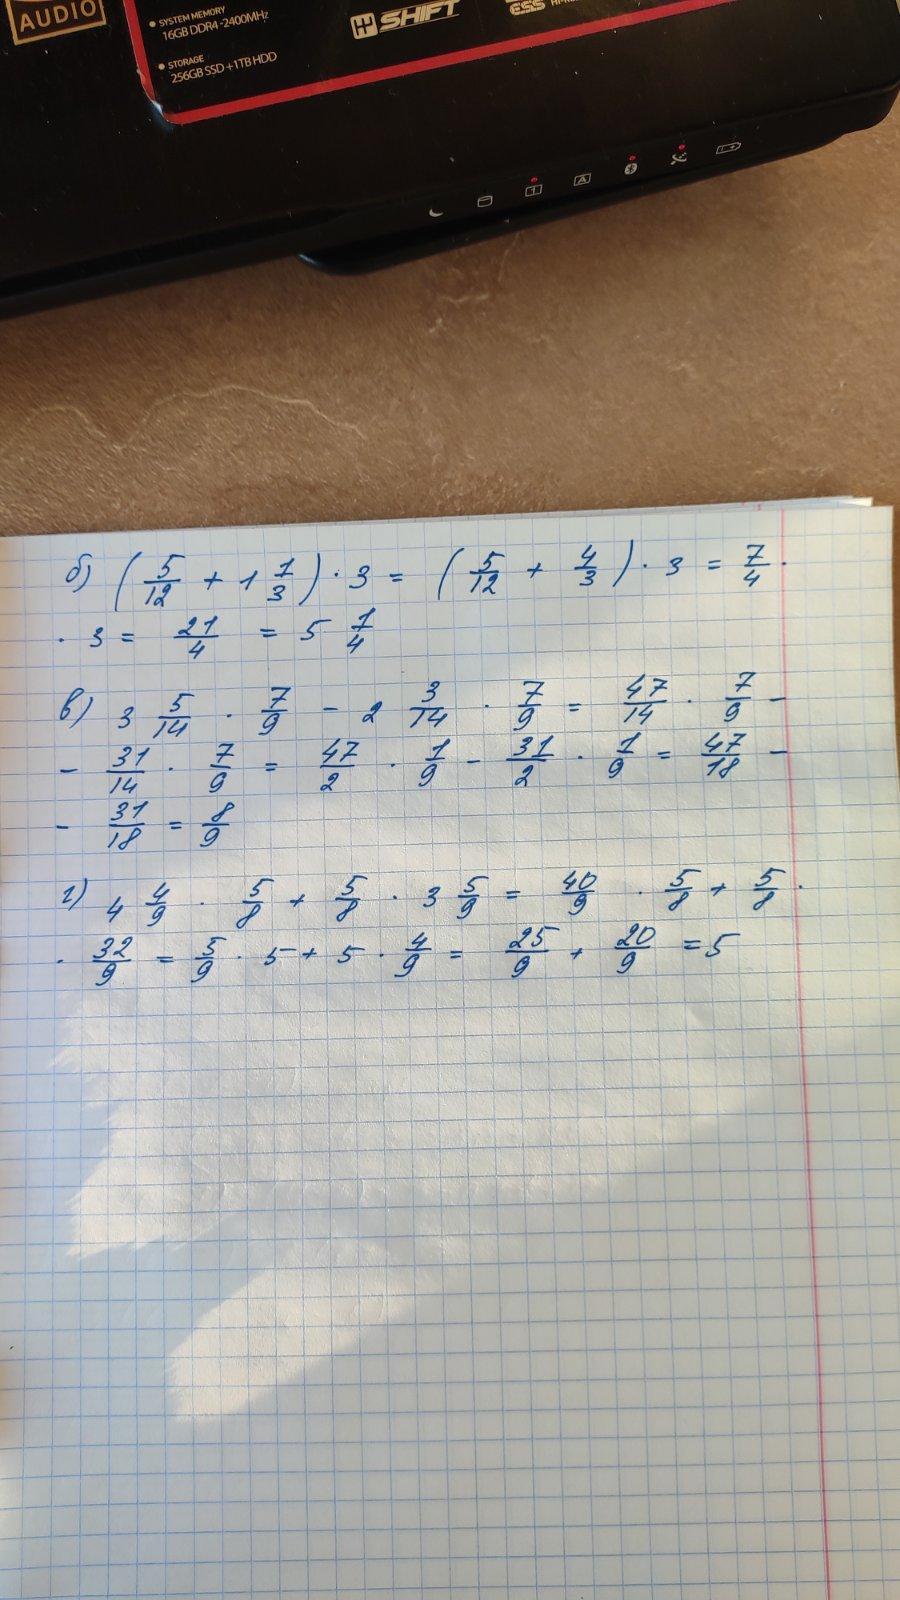 AUDIO
• SYSTEM MEMORY
16GB DDR4-2400MHz
• STORAGE
256GB SSD+1TB HDD
SHIFT
ESS
1
A
б) (5/12 + 1 1/3) · 3 = (5/12 + 4/3) · 3 = 7/4 ·
· 3 = 21/4 = 5 1/4
в) 3 5/14 · 7/9 - 2 3/14 · 7/9 = 47/14 · 7/9 -
- 31/14 · 7/9 = 47/2 · 1/9 - 31/2 · 1/9 = 47/18 -
- 31/18 = 8/9
г) 4 4/9 · 5/8 + 5/8 · 3 5/9 = 40/9 · 5/8 + 5/8 ·
· 32/9 = 5/9 · 5 + 5 · 4/9 = 25/9 + 20/9 = 5